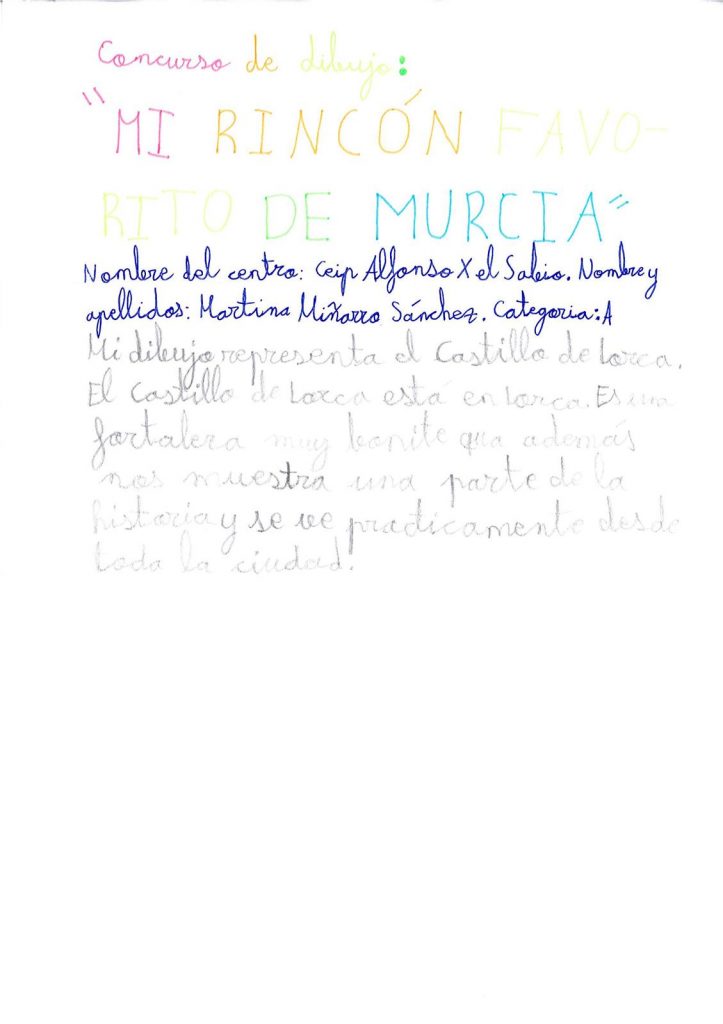 Concurso de dibujo:
"MI RINCÓN FAVO-
RITO DE MURCIA"
Nombre del centro: Ceip Alfonso X el Sabio. Nombre y
apellidos: Martina Miñarro Sánchez. Categoria: A
Mi dibujo representa el Castillo de Lorca.
El Castillo de Lorca está en Lorca. Es una
fortaleza muy bonita que además
nos muestra una parte de la
historia y se ve practicamente desde
toda la ciudad.